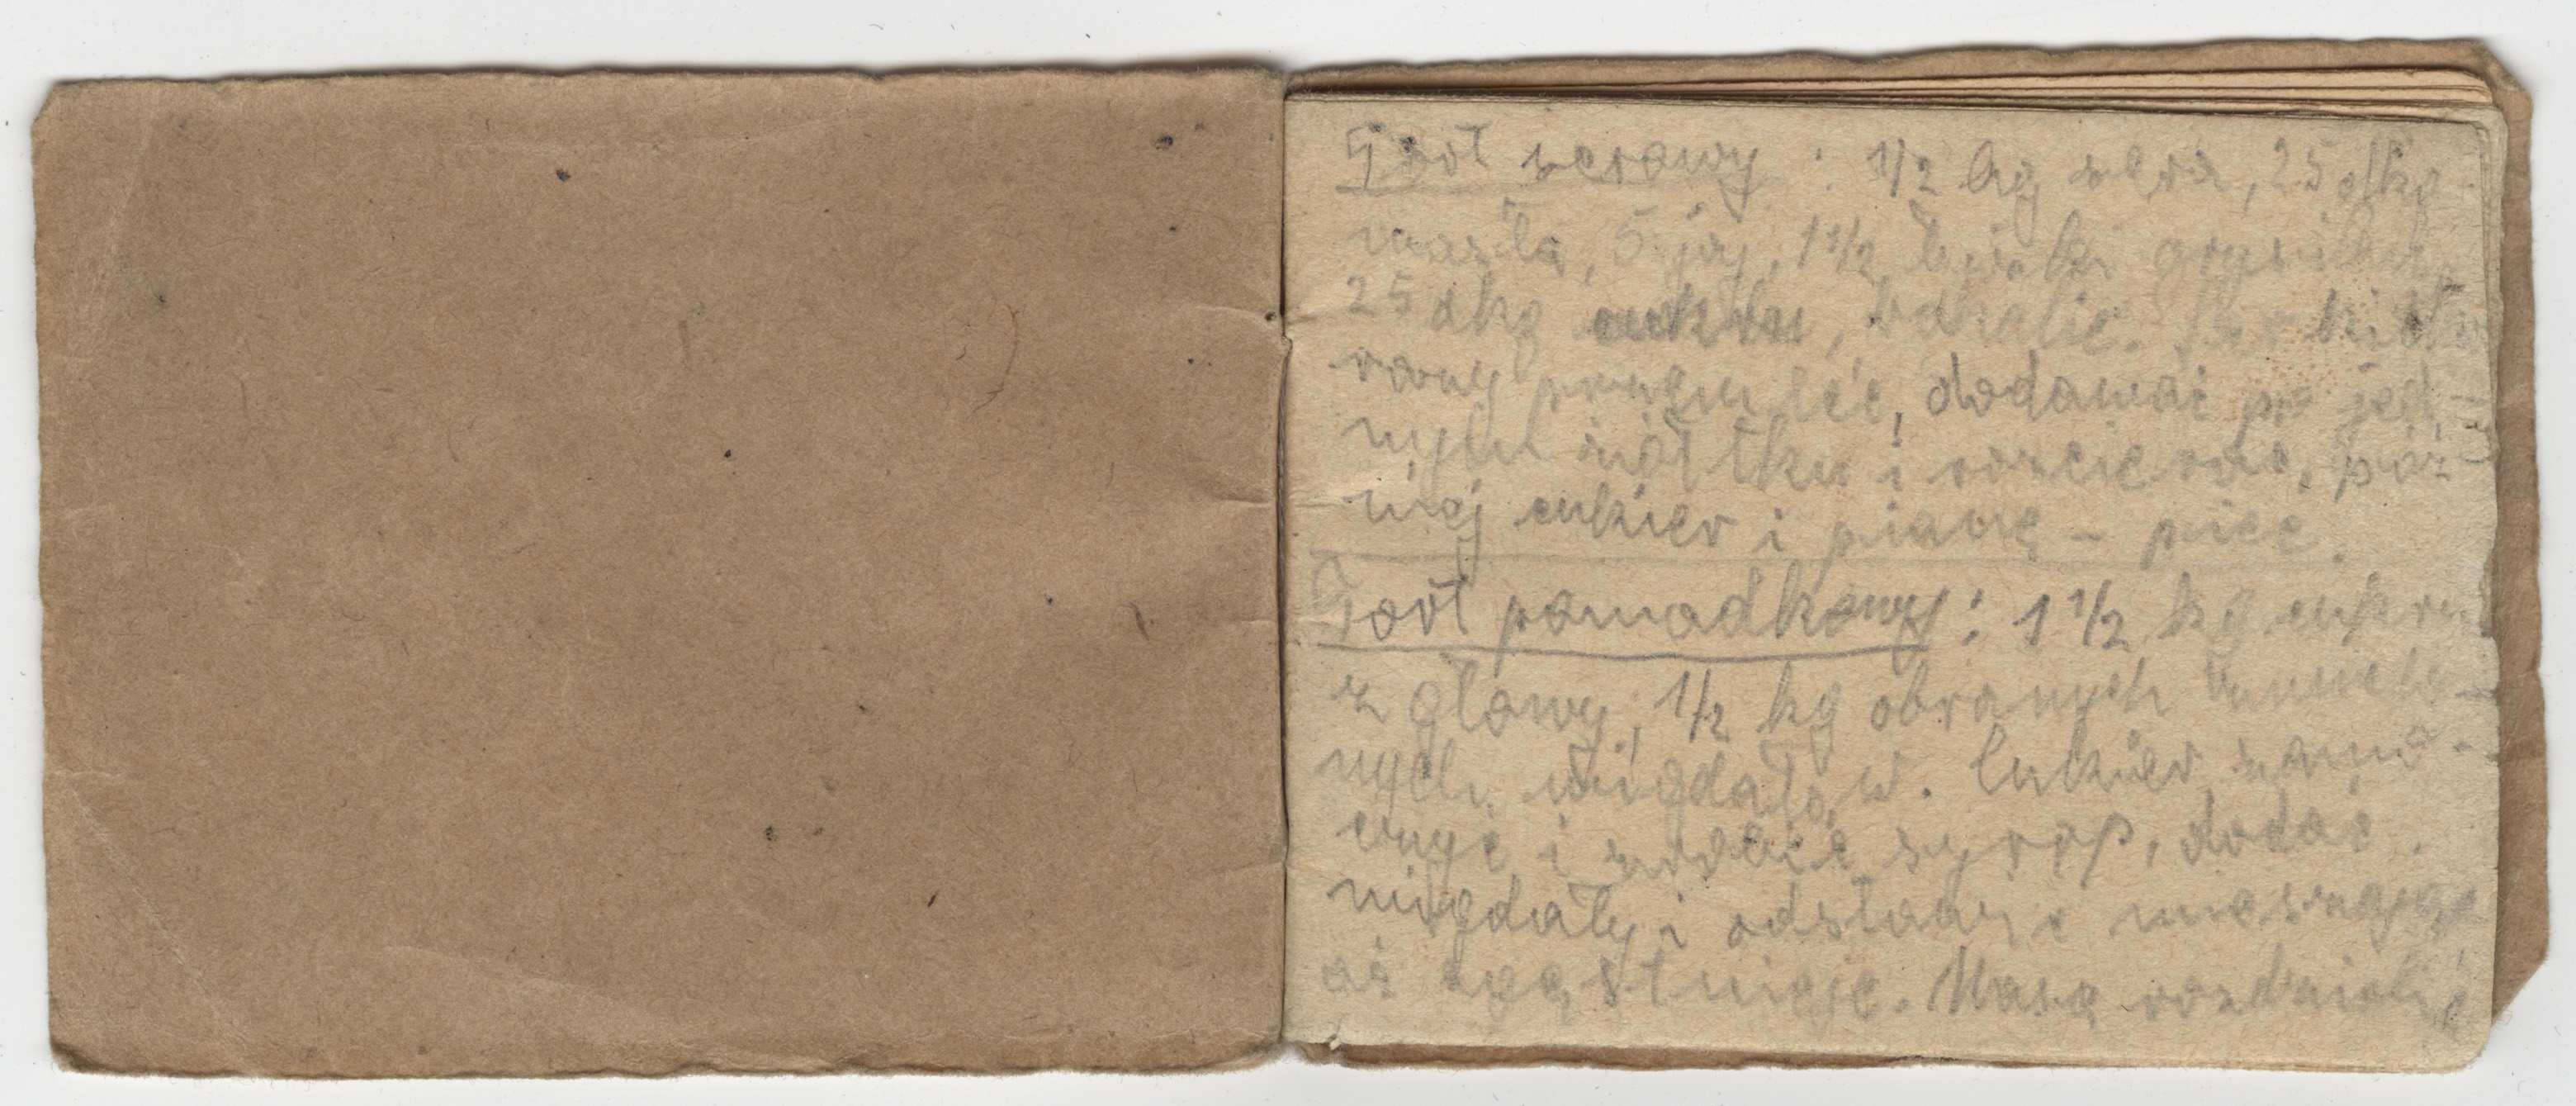 Tort serowy : 1/2 kg sera, 25 dkg
masła, 5 jaj, 1 1/2 łyżki grysiku,
25 dkg cukru, bakalie. Ser
przemleć, dodawać po jed-
nym żółtku i rozcierać, póź-
niej cukier i pianę - piec.
Tort pomadkowy : 1 1/2 kg cukru
z głowy, 1/2 kg obranych
nych migdałów. Cukier zamo-
czyć i zrobić syrop, dodać
migdały i odstawić mieszając
aż zgęstnieje. Masę rozdzielić